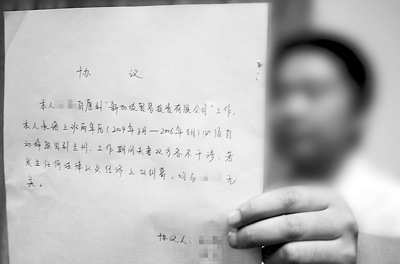 协 议
本人 自愿到“新加坡贸易投资有限公司”工作,
本人承诺上班两年后(2004年3月—2006年3月)必须自
动将 到兰州。工作期间夫妻双方各不干涉,若
发生任何法律以及经济上的纠葛,均与 无
关。
协议人